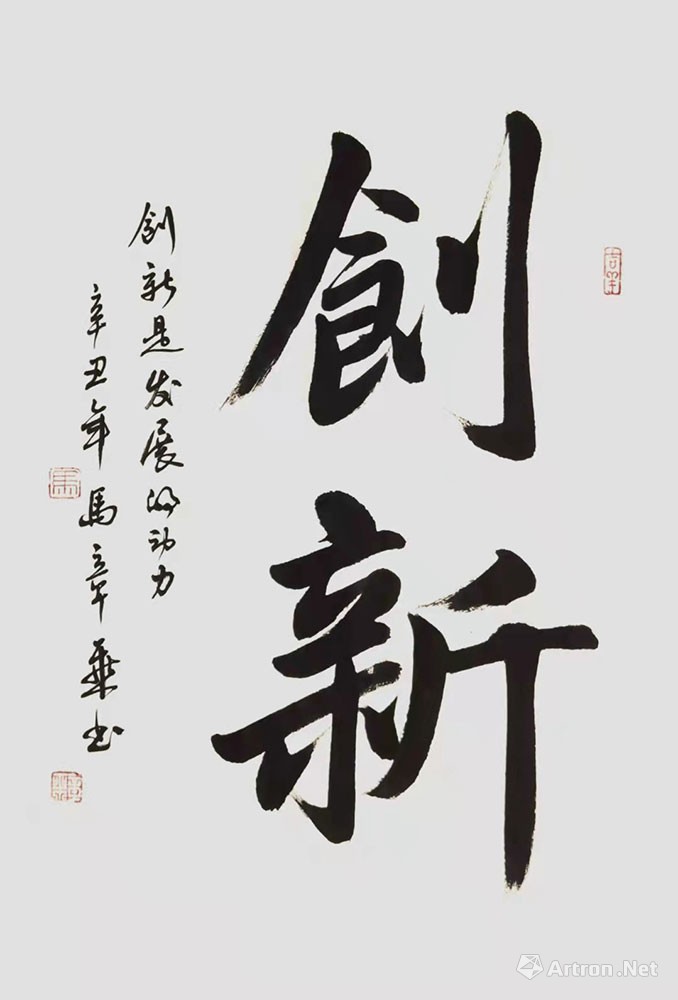 創新
創新是发展的动力
辛丑年馬章乘书
馬
Artron.Net